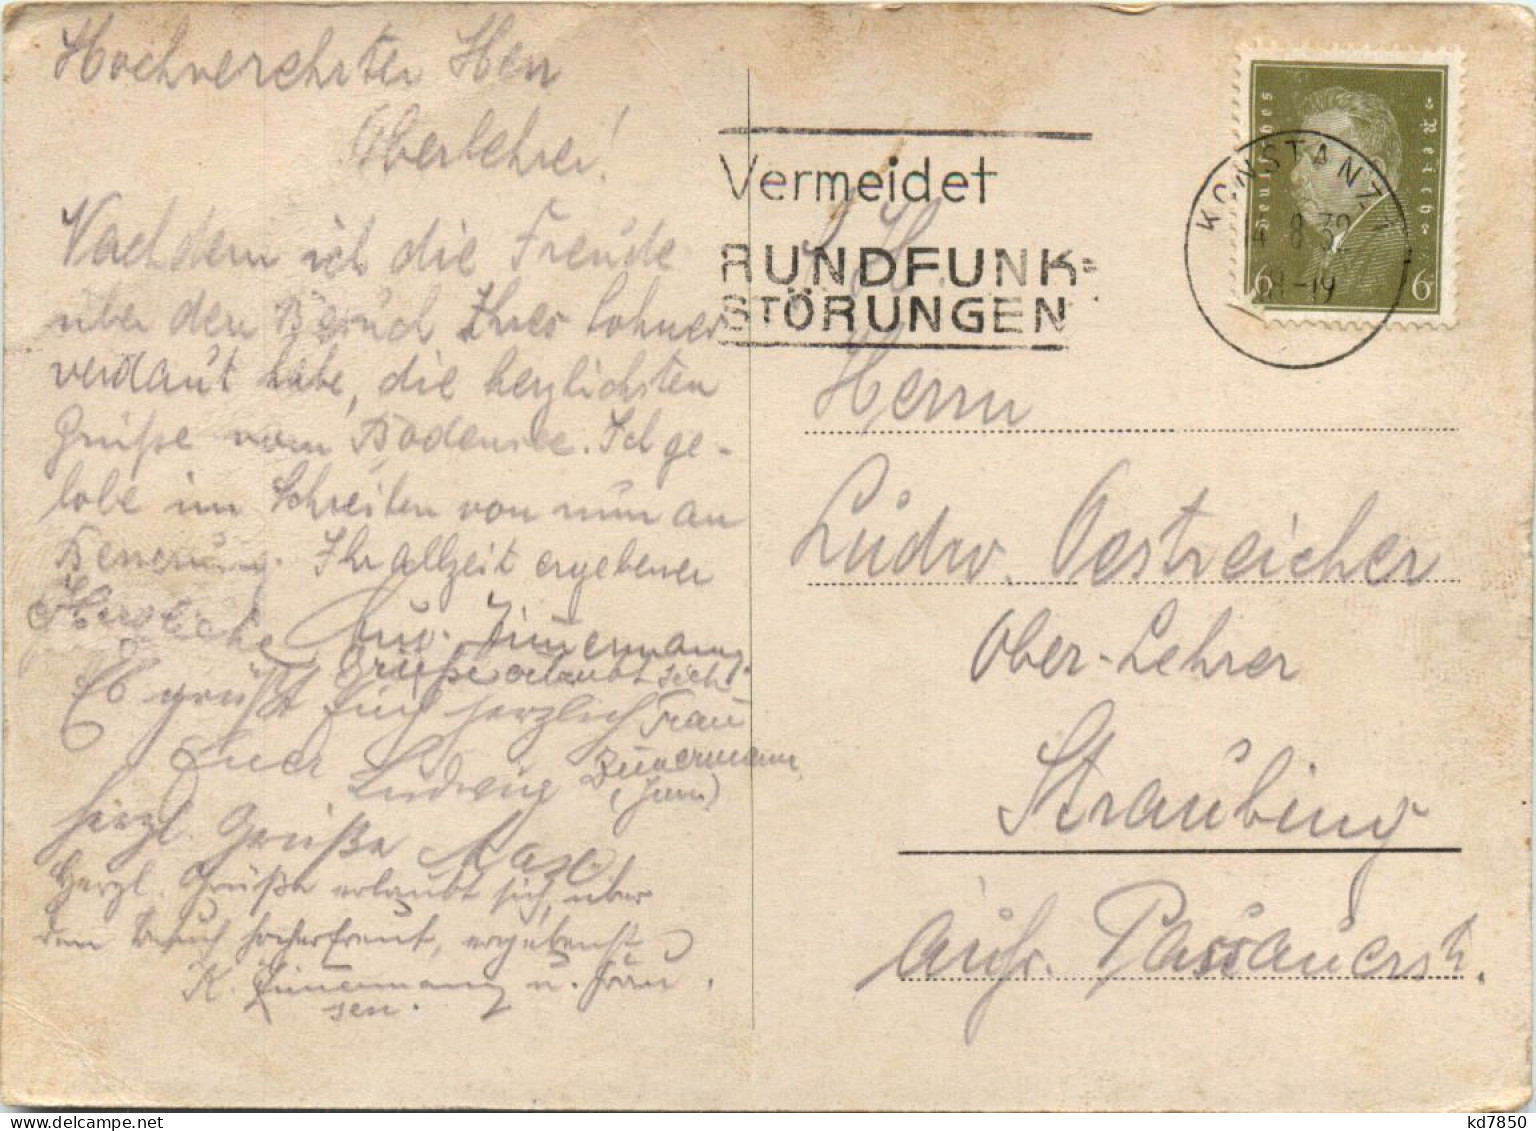 Hochverehrter Herr
Oberlehrer!
Nachdem ich die Freude
über den Besuch Ihres Sohnes
verdaut habe, die herzlichsten
Grüße vom Bodensee. Ich ge-
lobe im Schreiben von nun an
Besserung. Ihr allzeit ergebener
Zimmermann
Herzliche Grüße erlaubt sich
Frau
Zimmermann
(jun.)
Es grüßt Euch herzlich
Euer Ludwig
Herzl. Grüße
Herzl. Grüße erlaubt sich, über
den Besuch hocherfreut, ergebenst
K. Zimmermann u. Frau
sen.
Vermeidet
RUNDFUNK=
STÖRUNGEN
Deutsches Reich
6 6
KONSTANZ
8.32
-19
Herrn
Ludw. Oestreicher
Ober-Lehrer
Straubing
äuß. Passauerstr.
kd7850